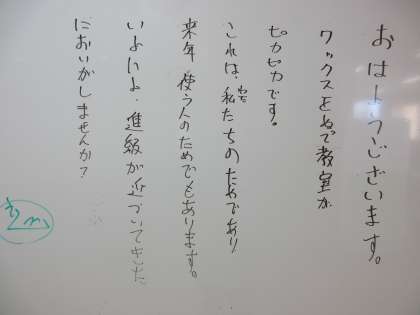 おはようございます。
ワックスをぬで教室が
ピカピカです。
これは、私たちのためであり
来年、使う人のためでもあります。
いよいよ、進級が近づいてきた
においがしませんか?